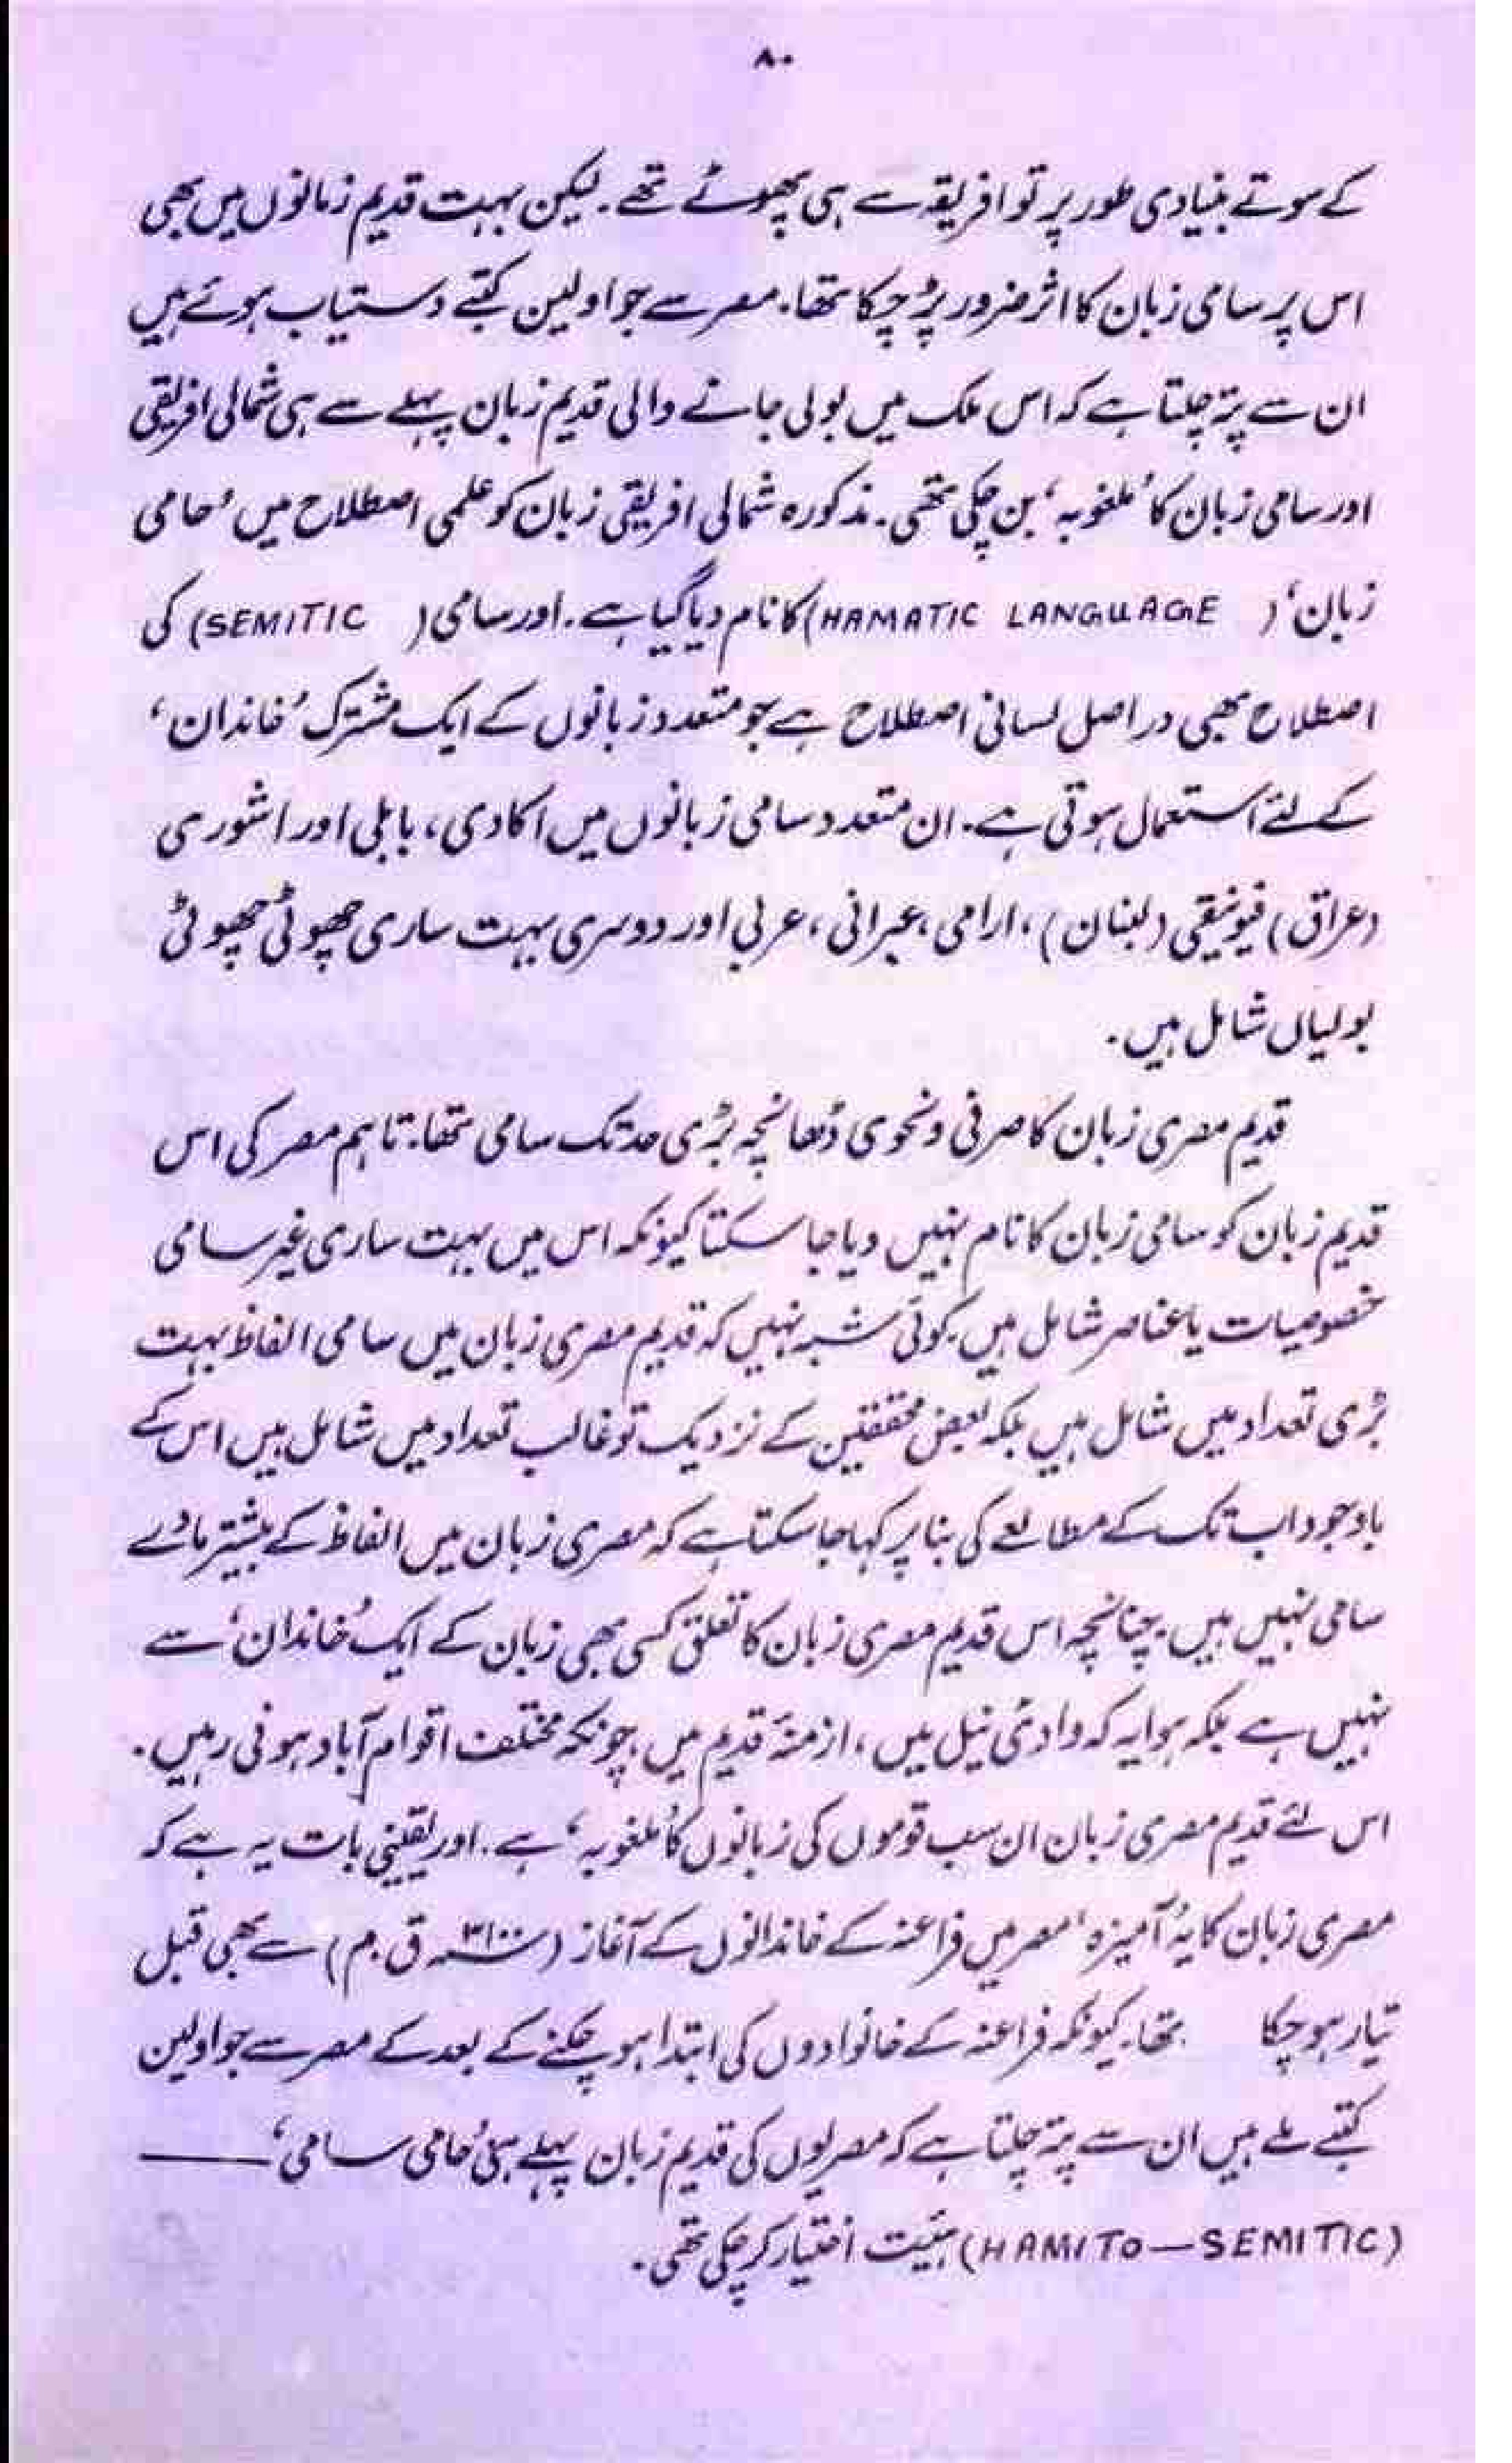 ۸۰
کے سوتے بنیادی طور پر تو افریقہ سے ہی پھوٹے تھے۔ لیکن بہت قدیم زمانوں میں بھی
اس پر سامی زبان کا اثر ضرور پڑ چکا تھا۔ مصر سے جو اولین کتبے دستیاب ہوئے ہیں
ان سے پتہ چلتا ہے کہ اس ملک میں بولی جانے والی قدیم زبان پہلے سے ہی شمالی افریقی
اور سامی زبان کا ’ملغوبہ‘ بن چکی تھی۔ مذکورہ شمالی افریقی زبان کو علمی اصطلاح میں ’حامی
زبان‘ (HAMATIC LANGUAGE) کا نام دیا گیا ہے۔ اور سامی (SEMITIC) کی
اصطلاح بھی دراصل لسانی اصطلاح ہے جو متعدد زبانوں کے ایک مشترک ’خاندان‘
کے لئے استعمال ہوتی ہے۔ ان متعدد سامی زبانوں میں اکادی، بابلی اور اشوری
(عراق) فیونیقی (لبنان)، ارامی، عبرانی، عربی اور دوسری بہت ساری چھوٹی چھوٹی
بولیاں شامل ہیں۔
قدیم مصری زبان کا صرفی و نحوی ڈھانچہ بڑی حد تک سامی تھا۔ تاہم مصر کی اس
قدیم زبان کو سامی زبان کا نام نہیں دیا جا سکتا کیونکہ اس میں بہت ساری غیر سامی
خصوصیات یا عناصر شامل ہیں۔ کوئی شبہ نہیں کہ قدیم مصری زبان میں سامی الفاظ بہت
بڑی تعداد میں شامل ہیں بلکہ بعض محققین کے نزدیک تو غالب تعداد میں شامل ہیں اس کے
باوجود اب تک کے مطالعے کی بنا پر کہا جا سکتا ہے کہ مصری زبان میں الفاظ کے بیشتر مادے
سامی نہیں ہیں۔ چنانچہ اس قدیم مصری زبان کا تعلق کسی بھی زبان کے ایک ’خاندان‘ سے
نہیں ہے بلکہ ہوا یہ کہ وادیٔ نیل میں، ازمنۂ قدیم میں چونکہ مختلف اقوام آباد ہوتی رہیں۔
اس لئے قدیم مصری زبان ان سب قوموں کی زبانوں کا ’ملغوبہ‘ ہے۔ اور یقینی بات یہ ہے کہ
مصری زبان کا یہ ’آمیزہ‘ مصر میں فراعنہ کے خاندانوں کے آغاز (۳۱۰۰؁ ق۔م) سے بھی قبل
تیار ہو چکا تھا۔ کیونکہ فراعنہ کے خانوادوں کی ابتدا ہو چکنے کے بعد کے مصر سے جو اولین
کتبے ملے ہیں ان سے پتہ چلتا ہے کہ مصریوں کی قدیم زبان پہلے ہی ’حامی سامی‘ ——
(HAMITO—SEMITIC) ہئیت اختیار کر چکی تھی۔